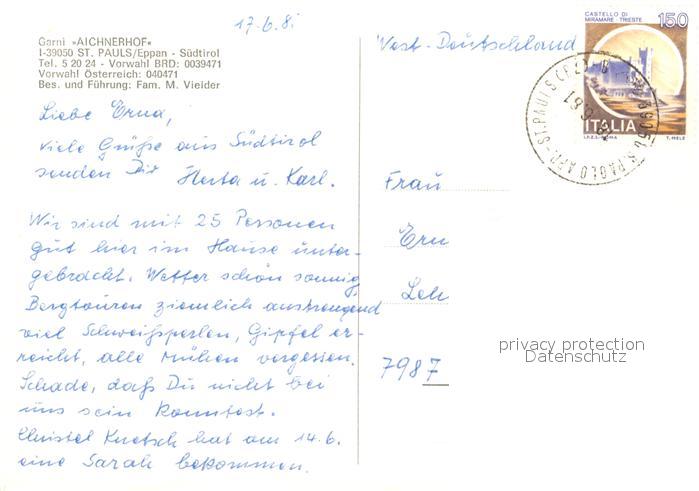 17.6.8
Garni »AICHNERHOF«
I-39050 ST. PAULS/Eppan - Südtirol
Tel. 5 20 24 - Vorwahl BRD: 0039471
Vorwahl Österreich: 040471
Bes. und Führung: Fam. M. Vieider
Liebe Erna,
viele Grüße aus Südtirol
senden Dir Herta u. Karl.
Wir sind mit 25 Personen
gut hier im Hause unter-
gebracht. Wetter schön sonnig,
Bergtouren ziemlich anstrengend
viel Schweißperlen, Gipfel er-
reicht, alle Mühen vergessen.
Schade, daß Du nicht bei
uns sein konntest.
Christel Knetsch hat am 14.6.
eine Sarah bekommen.
West-Deutschland
CASTELLO DI
MIRAMARE - TRIESTE
150
ITALIA
I.P.Z.S. - ROMA T. MELE
39050 S. PAOLO APP. - ST. PAULS (BZ) - B
Frau
Ern
Leh
7987
privacy protection
Datenschutz